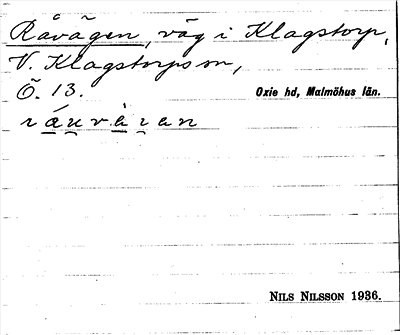 Råvägen, väg i Klagstorp,
V. Klagstorps sn,
Ö. 13. Oxie hd, Malmöhus län.
ráu̯vàʒan
NILS NILSSON 1936.